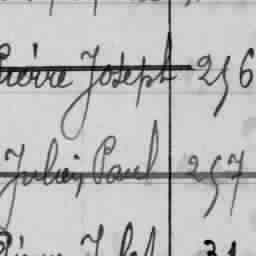 Pierre Joseph 256
Julien Paul 257